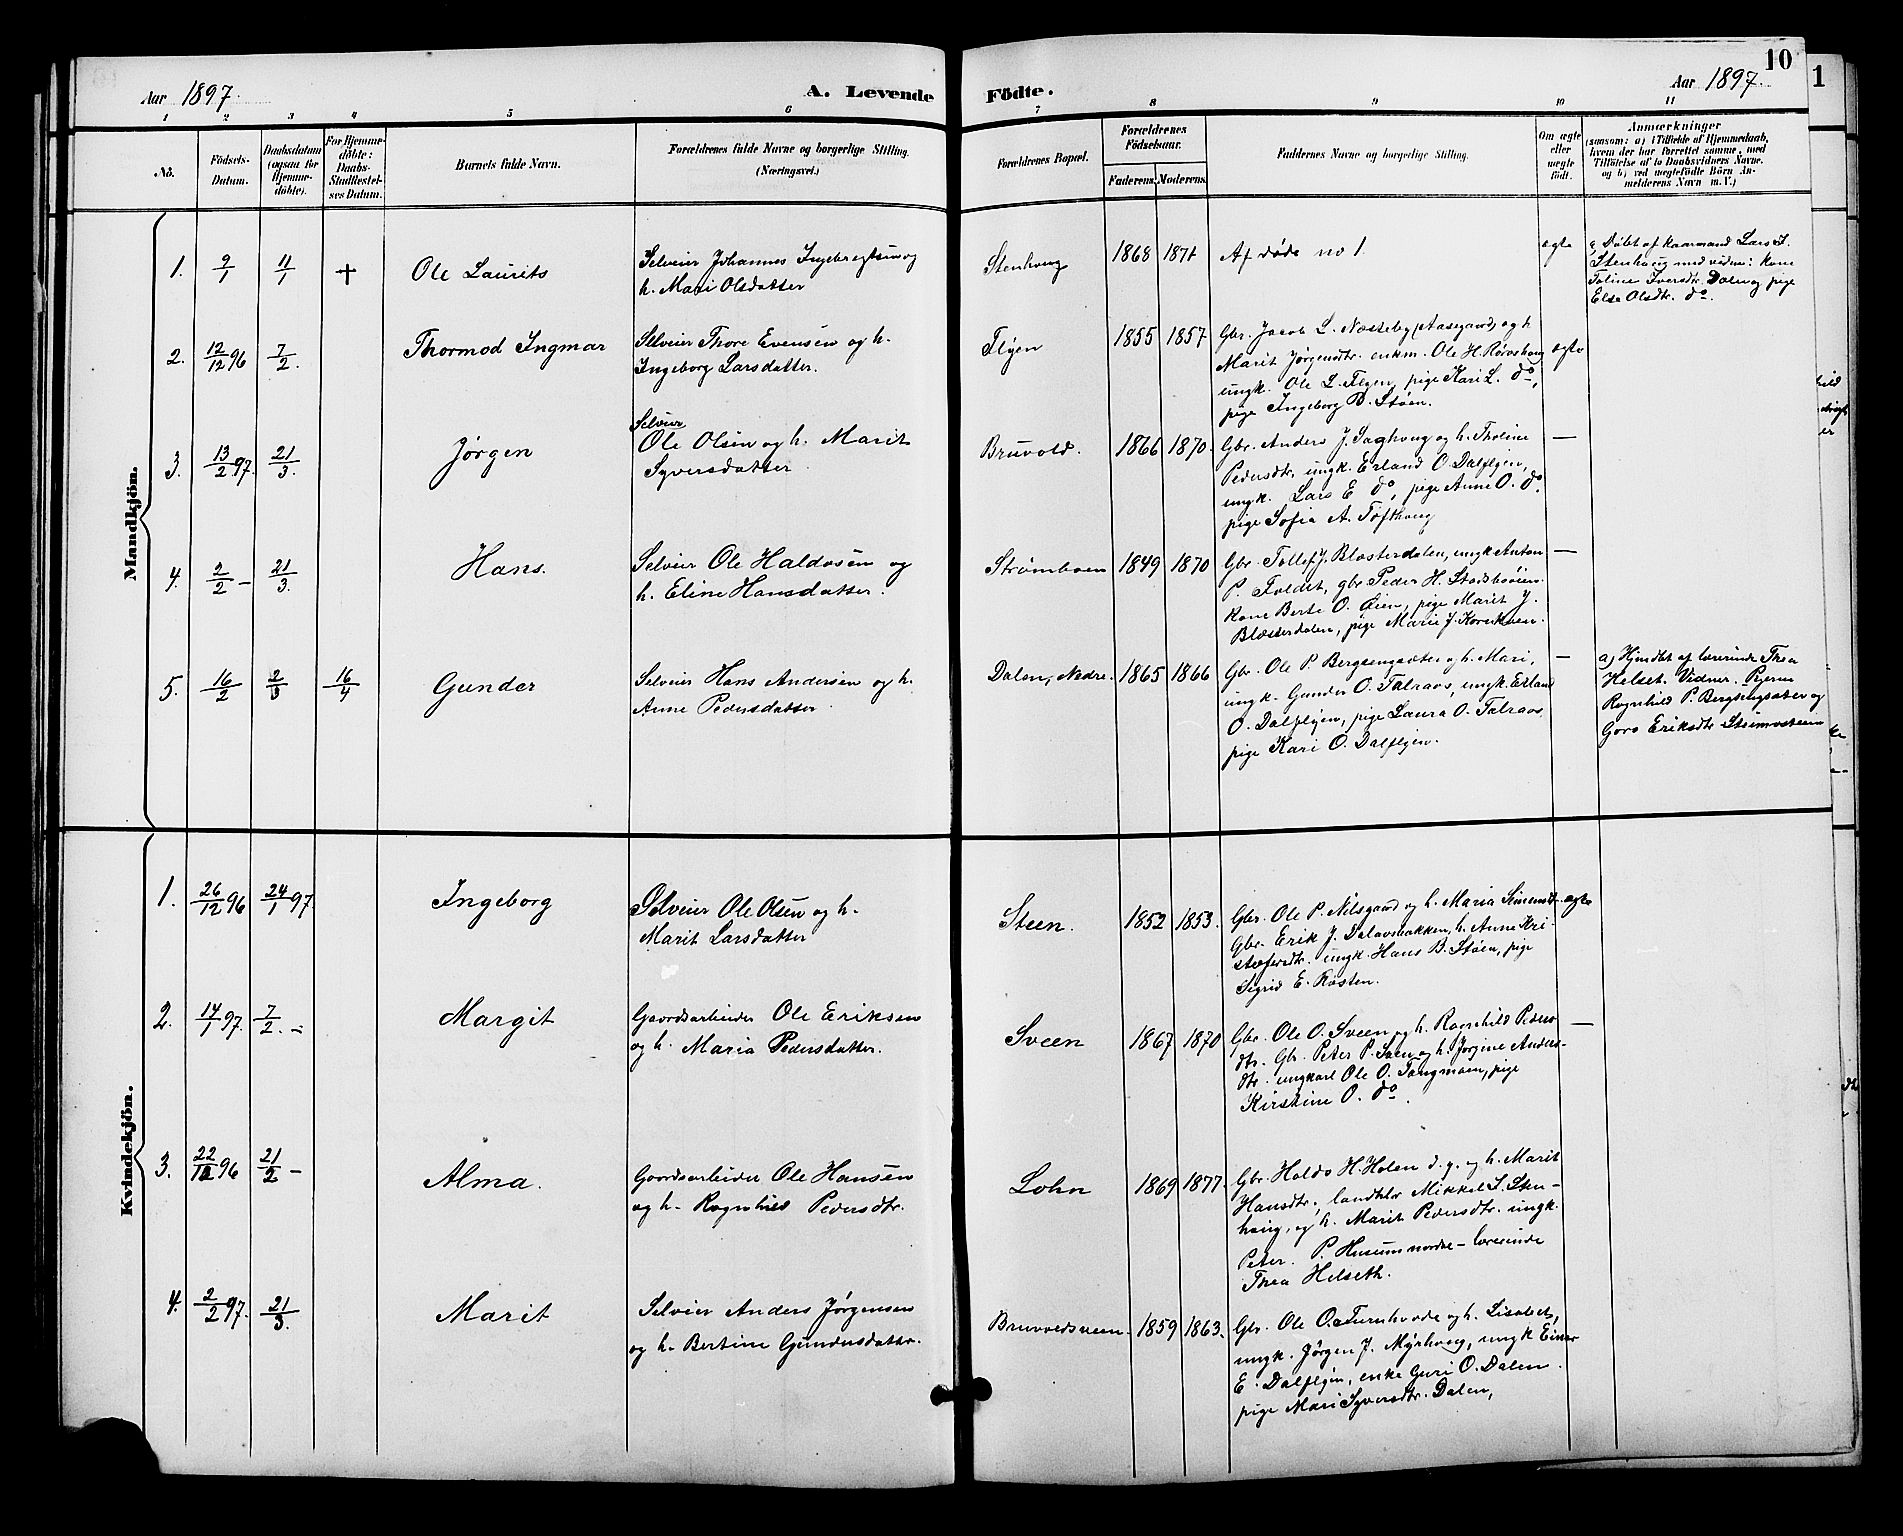 10
1
Aar 1897.
A. Levende
Födte.
Aar 1897.
1 2 3 4 5 6 7 8 9 10 11
No.
Födsels-
Datum.
Daabsdatum
(ogsaa for
Hjemme-
döbte).
For Hjemme-
döbte:
Daabs-
Stadfæstel-
ses Datum.
Barnets fulde Navn.
Forældrenes fulde Navne og borgerlige Stilling.
(Næringsvei.)
Forældrenes Bopæl.
Forældrenes
Födselsaar.
Faderens. Moderens.
Faddernes Navne og borgerlige Stilling.
Om ægte
eller
uægte
födt.
Anmærkninger
(saasom: a) i Tilfælde af Hjemmedaab,
hvem der har forrettet samme, med
Tilföielse af to Daabsvidners Navne.
og b) ved uægtefödte Börn An-
melderens Navn m.V.)
Mandkjön.
1. 9/1 11/1 + Ole Laurits
Selveier Johannes Ingebrigtsen og
h. Mari Olsdatter
Stenhoug 1868 1871 Af døde no 1. ægte
a, Døbt af kaarmand Lars I.
Stenhoug med vidne: kone
Toline Iversdtr. Dalen og pige
Else Olsdtr. do.
2. 12/12 96 7/2. Thormod Ingmar
Selveier Thore Evensen og h.
Ingeborg Larsdatter.
Flyen 1855 1857
Gbr. Jacob L. Næsteby Aasgaard, og h
Marit Jørgensdtr. enkm. Ole H. Rørvshoug
ungk. Ole L. Flyen, pige Kari L. do,
pige Ingeborg B. Støen.
ægte
3. 13/2 97. 21/3. Jørgen
Selveier
Ole Olsen og h. Marit
Syversdatter
Bruvold. 1866 1870.
Gbr. Anders J. Saghoug og h. Tholine
Pedersdtr, ungk. Erland O. Dalflyen,
ungk. Lars E do, pige Anne O. do.
pige Sofia A. Tofthoug
—
4. 2/2 – 21/3. Hans.
Selveier Ole Haldosen og
h. Eline Hansdatter.
Strømboen 1849 1870
Gbr. Tollef J. Blæsterdalen, ungk Anton
P. Foldet, gbr. Peder H. Stadsbøien
kone Berte O. Øien, pige Marit J.
Blæsterdalen, pige Marie J. Kornkveen.
—
5. 16/2 2/3 16/4 Gunder
Selveier Hans Andersen og h.
Anne Pedersdatter.
Dalen, Nedre. 1865 1866
Gbr. Ole P. Bergsengsæter og h. Mari,
ungk. Gunder O. Talraas, ungk. Erland
O. Dalflyen, pige Laura O. Talraas,
pige Kari O. Dalflyen.
—
a) Hjmdbt af lærerinde Thea
Helset. Vidner. Pigerne
Ragnhild P. Bergsengsæter og
Goro Eriksdtr
Kvindekjön.
1. 26/12 96 24/1 97. Ingeborg
Selveier Ole Olsen og h.
Marit Larsdatter
Steen. 1852 1853.
Gbr. Ole P. Nilsgaard og h. Maria Simensdt.
Gbr. Erik J. Dalavbakken, h. Anne Kri-
stofersdtr. ungk. Hans B. Støen, pige
Sigrid E. Røsten.
ægte
2. 14/1 97. 7/2. – Margit
Gaardsarbeider Ole Eriksen
og h. Maria Pedersdatter.
Sveen 1867 1870
Gbr. Ole O. Sveen og h. Ragnhild Peders
dtr. Gbr. Peter P. Sveen og h. Jørgine Anders-
dtr. ungkarl Ole O. Tangmoen, pige
Kirstine O. do.
—
3. 22/12 96 21/2 – Alma.
Gaardsarbeider Ole Hansen
og h. Ragnhild Pedersdtr.
Lohn 1869 1877.
Gbr. Haldo H. Holen d. y. og h. Marit
Hansdtr, landhlr Mikkel I. Sten-
houg, og h. Marit Pedersdtr. ungk.
Peter. P. Husum nordre – lærerinde
Thea Helseth.
4. 2/2 97. 21/3. Marit
Selveier Anders Jørgensen
og h. Bertine Gundersdatter.
Bruvoldsveen. 1859 1863.
Gbr. Ole O. Turnhovde og h. Lisabet,
ungk. Jørgen J. Myrhoug, ungk Einar
E. Dalflyen, enke Guri O. Dalen.
pige Mari Syversdtr. Dalen,